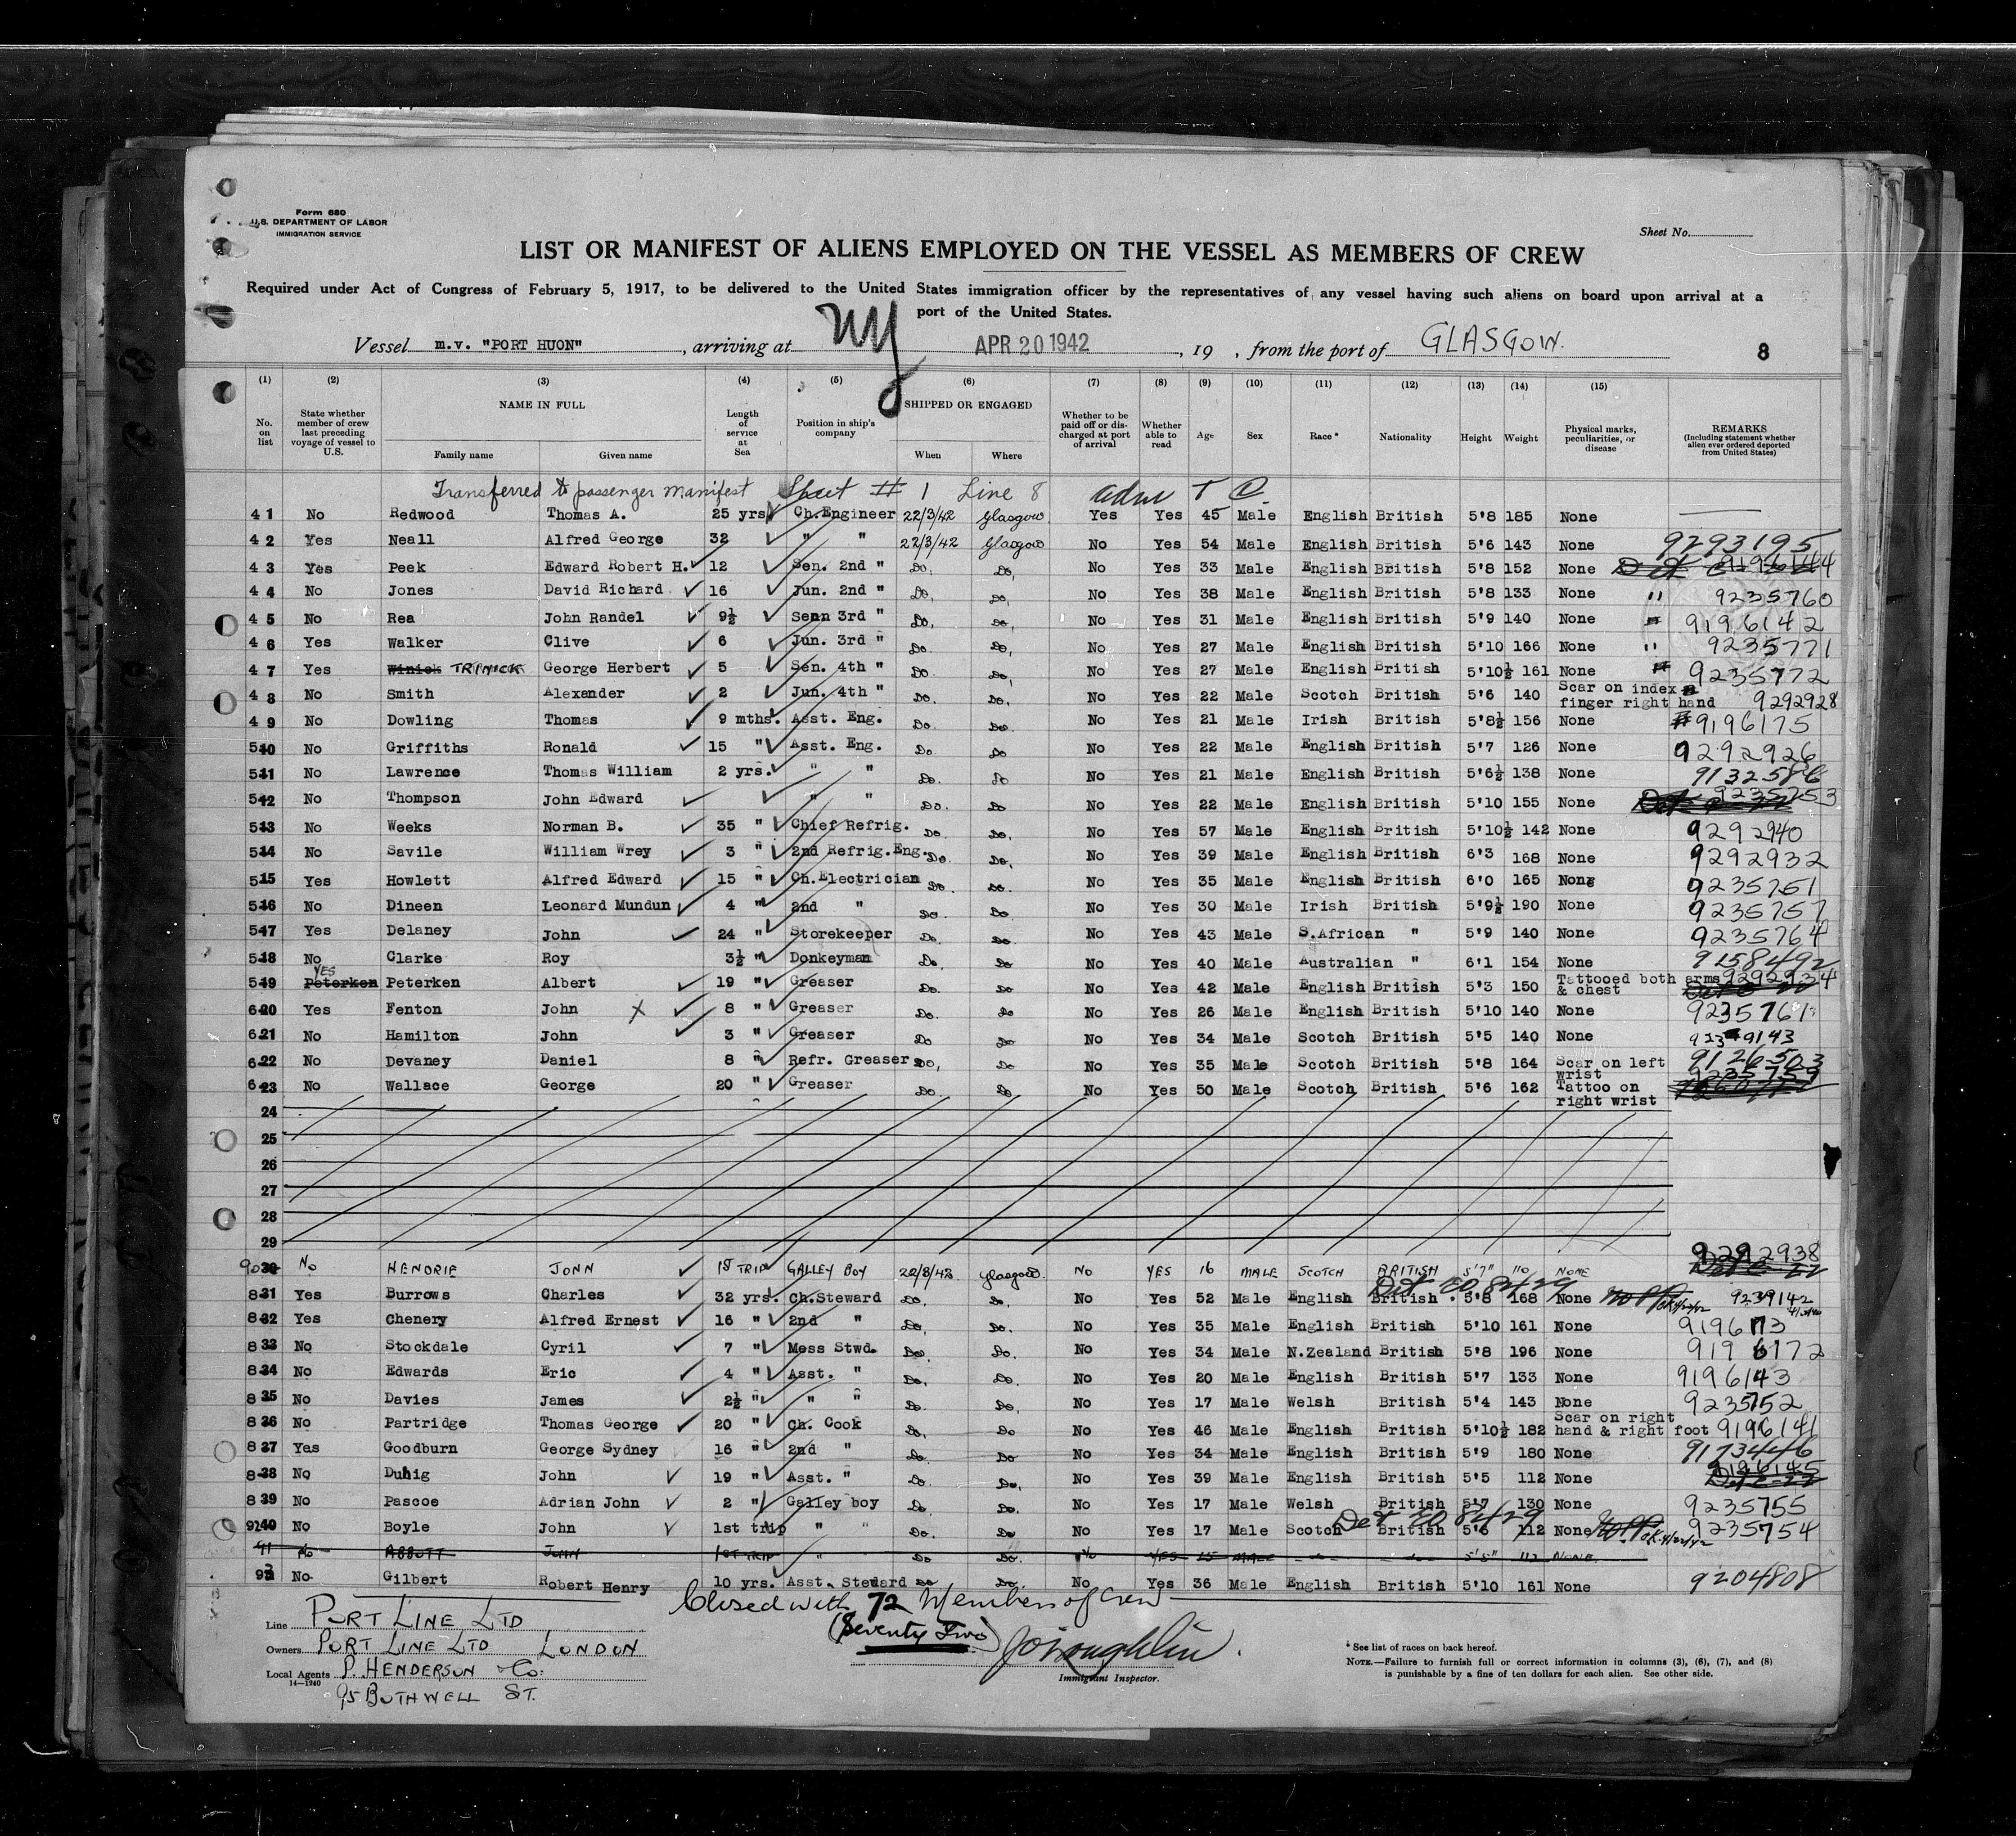 Form 680
U.S. DEPARTMENT OF LABOR
IMMIGRATION SERVICE
Sheet No.
LIST OR MANIFEST OF ALIENS EMPLOYED ON THE VESSEL AS MEMBERS OF CREW
Required under Act of Congress of February 5, 1917, to be delivered to the United States immigration officer by the representatives of any vessel having such aliens on board upon arrival at a
port of the United States.
Vessel m.v. "PORT HUON" , arriving at NY APR 20 1942 , 19 , from the port of GLASGOW. 8
(1) (2) (3) (4) (5) (6) (7) (8) (9) (10) (11) (12) (13) (14) (15)
No. on list State whether member of crew last preceding voyage of vessel to U.S. NAME IN FULL Family name Given name Length of service at Sea Position in ship's company SHIPPED OR ENGAGED When Where Whether to be paid off or discharged at port of arrival Whether able to read Age Sex Race* Nationality Height Weight Physical marks, peculiarities, or disease REMARKS (Including statement whether alien ever ordered deported from United States)
Transferred to passenger manifest Sheet # 1 Line 8 adm T
41 No Redwood Thomas A. 25 yrs Ch.Engineer 22/3/42 Glasgow Yes Yes 45 Male English British 5'8 185 None
42 Yes Neall Alfred George 32 " " 22/3/42 Glasgow No Yes 54 Male English British 5'6 143 None 9293195
43 Yes Peek Edward Robert H. 12 Sen. 2nd " Do. Do. No Yes 33 Male English British 5'8 152 None 9196144
44 No Jones David Richard 16 Jun. 2nd " Do. Do. No Yes 38 Male English British 5'8 133 None " 9235760
45 No Rea John Randel 9½ Senn 3rd " Do. Do. No Yes 31 Male English British 5'9 140 None 9196142
46 Yes Walker Clive 6 Jun. 3rd " Do. Do. No Yes 27 Male English British 5'10 166 None " 9235771
47 Yes Winick TRINICK George Herbert 5 Sen. 4th " Do. Do. No Yes 27 Male English British 5'10½ 161 None 9235772
48 No Smith Alexander 2 Jun. 4th " Do. Do. No Yes 22 Male Scotch British 5'6 140 Scar on index finger right hand 9292928
49 No Dowling Thomas 9 mths. Asst. Eng. Do. Do. No Yes 21 Male Irish British 5'8½ 156 None 9196175
510 No Griffiths Ronald 15 " Asst. Eng. Do. Do No Yes 22 Male English British 5'7 126 None 9292926
511 No Lawrence Thomas William 2 yrs. " " Do. Do No Yes 21 Male English British 5'6½ 138 None 9132586
512 No Thompson John Edward " " Do. Do No Yes 22 Male English British 5'10 155 None 9235753
513 No Weeks Norman B. 35 " Chief Refrig. Do. Do. No Yes 57 Male English British 5'10½ 142 None 9292940
514 No Savile William Wrey 3 " 2nd Refrig.Eng. Do. Do. No Yes 39 Male English British 6'3 168 None 9292932
515 Yes Howlett Alfred Edward 15 " Ch.Electrician Do. Do. No Yes 35 Male English British 6'0 165 None 9235751
516 No Dineen Leonard Mundun 4 " 2nd " Do. Do. No Yes 30 Male Irish British 5'9½ 190 None 9235757
517 Yes Delaney John 24 " Storekeeper Do. Do. No Yes 43 Male S.African " 5'9 140 None 9235764
518 No Clarke Roy 3½ " Donkeyman Do. Do No Yes 40 Male Australian " 6'1 154 None 9158492
519 YES Peterken Peterken Albert 19 " Greaser Do. Do No Yes 42 Male English British 5'3 150 Tattooed both arms & chest 9292934
620 Yes Fenton John X 8 " Greaser Do. Do No Yes 26 Male English British 5'10 140 None 9235761
621 No Hamilton John 3 " Greaser Do Do No Yes 34 Male Scotch British 5'5 140 None 9239143
622 No Devaney Daniel 8 " Refr. Greaser Do. Do No Yes 35 Male Scotch British 5'8 164 Scar on left wrist 9126503
623 No Wallace George 20 " Greaser Do. Do No Yes 50 Male Scotch British 5'6 162 Tattoo on right wrist 9235759
24
25
26
27
28
29
9030 No HENDRIE JOHN 1ST TRIP GALLEY BOY 22/3/42 Glasgow. No YES 16 MALE SCOTCH BRITISH 5'7" 110 NONE 9292938
831 Yes Burrows Charles 32 yrs. Ch.Steward Do. Do. No Yes 52 Male English British 5'8 168 None Det EO 8429 9239142
832 Yes Chenery Alfred Ernest 16 " 2nd " Do. Do. No Yes 35 Male English British 5'10 161 None 9196173
833 No Stockdale Cyril 7 " Mess Stwd. Do. Do. No Yes 34 Male N.Zealand British 5'8 196 None 9196172
834 No Edwards Eric 4 " Asst. " Do. Do. No Yes 20 Male English British 5'7 133 None 9196143
835 No Davies James 2½ " " " Do. Do. No Yes 17 Male Welsh British 5'4 143 None 9235752
836 No Partridge Thomas George 20 " Ch. Cook Do. Do No Yes 46 Male English British 5'10½ 182 Scar on right hand & right foot 9196141
837 Yes Goodburn George Sydney 16 " 2nd " Do. Do No Yes 34 Male English British 5'9 180 None 9173446
838 No Duhig John 19 " Asst. " Do. Do. No Yes 39 Male English British 5'5 112 None 9196145
839 No Pascoe Adrian John 2 " Galley boy Do. Do. No Yes 17 Male Welsh British 5'7 130 None 9235755
9140 No Boyle John 1st trip " " Do. Do No Yes 17 Male Scotch British 5'6 112 None Det EO 8429 9235754
91 No ABBOTT JOHN 1ST TRIP " Do Do. No YES 15 MALE 5'5" 112 NONE.
92 No Gilbert Robert Henry 10 yrs. Asst. Steward Do Do. No Yes 36 Male English British 5'10 161 None 9204808
Closed with 72 Members of Crew
(Seventy Two)
Line PORT LINE LTD
Owners PORT LINE LTD LONDON
Local Agents P. HENDERSON & Co.
14—1240
95 BOTHWELL ST.
Immigrant Inspector.
* See list of races on back hereof.
NOTE.—Failure to furnish full or correct information in columns (3), (6), (7), and (8)
is punishable by a fine of ten dollars for each alien. See other side.